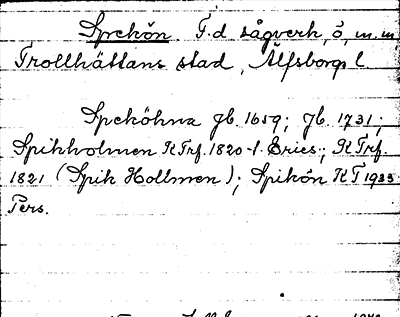 Spekön. F.d sågverk, ö, m.m,
Trollhättans stad, Älfsborgs l.
Speköhna Jb. 1659; Jb. 1731;
Spikholmen KTrf. 1820-t. Erics.; KTrf.
1821 (Spik Hollmen); Spikön KT 1933
Pers.